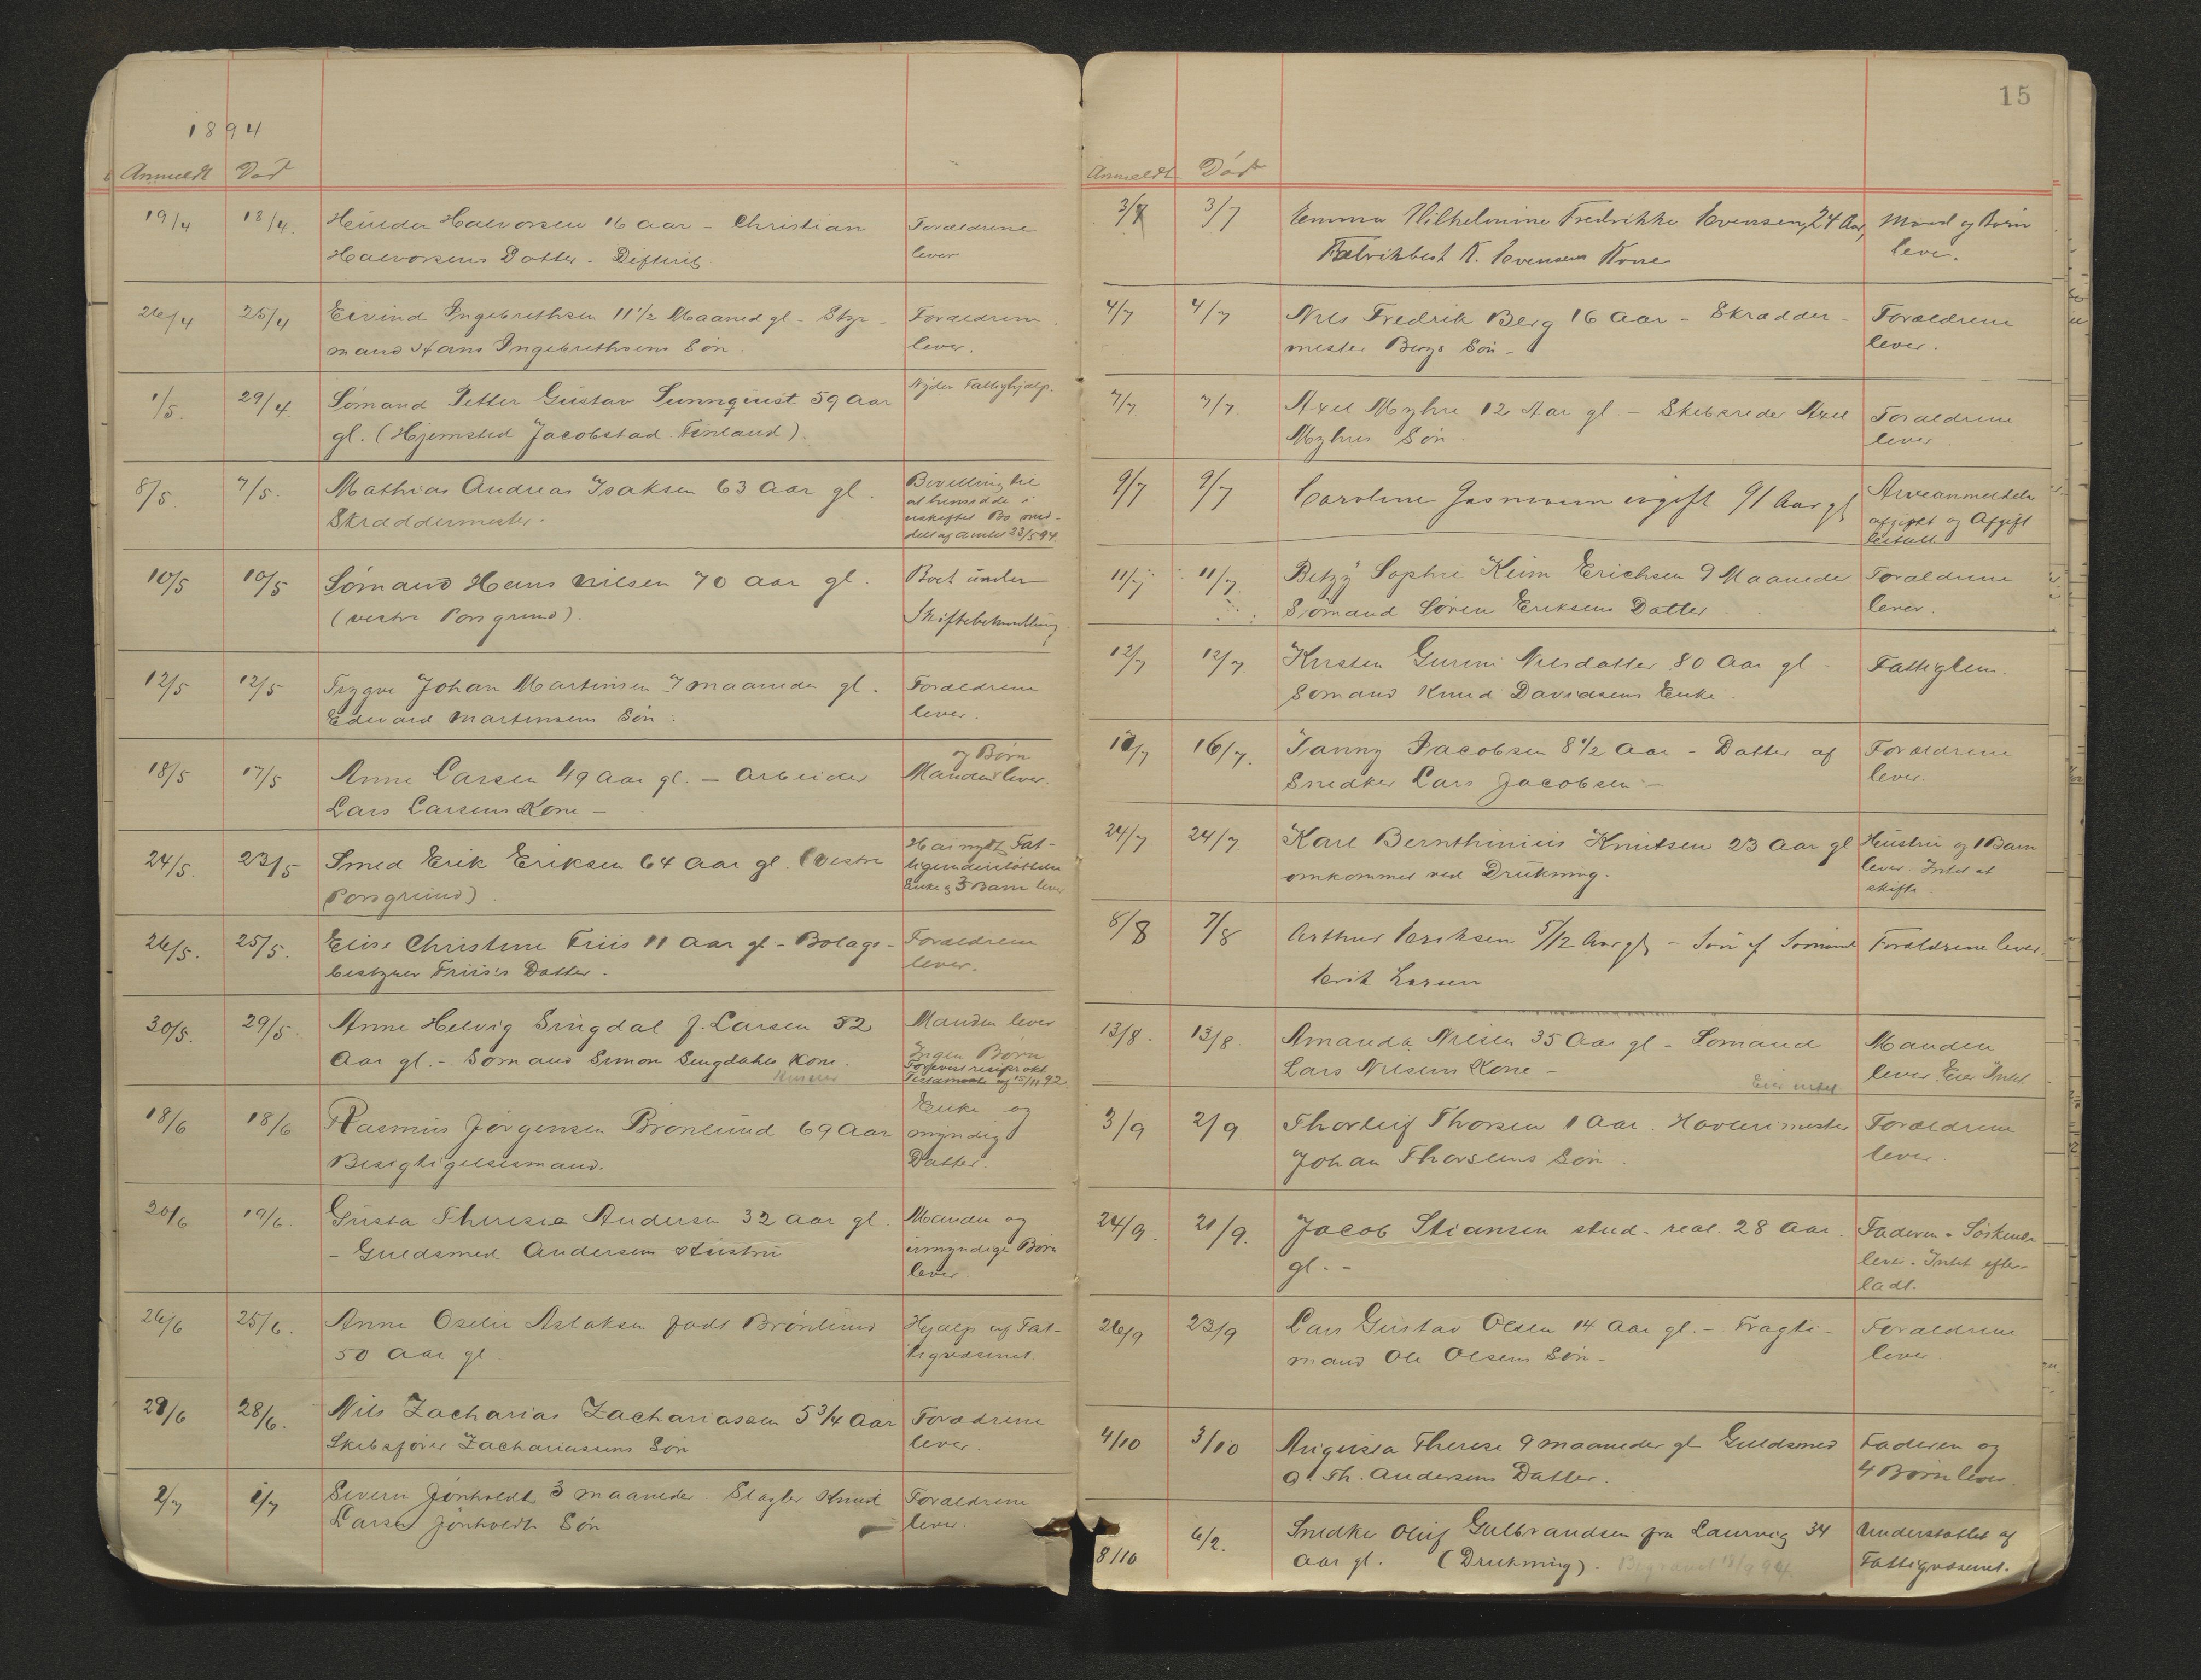 1894
Anmeldt Død
19/4 18/4. Hulda Halvorsen 16 Aar - Christian Forældrene
Halvorsens Datter. Difterit. lever
26/4 25/4 Eivind Ingebrethsen 11 1/2 Maaned gl - Styr- Forældrene
mand Hans Ingebrethsens Søn. lever.
1/5. 29/4. Sømand Petter Gustav Sunnquist 59 Aar Nyder Fattighjælp.
gl. (Hjemsted Jacobstad. Finland).
8/5 7/5. Mathias Andreas Isaksen 63 Aar gl. Bevilling til
Skræddermester. at hensidde i
uskiftet Bo med-
delt af Amtet 23/5 94.
10/5 10/5 Sømand Hans Nilsen 70 Aar gl. Boet under
(vestre Porsgrund). Skiftebehandling.
12/5 12/5 Trygve Johan Martinsen 7 maaneder gl. Forældrene
Edevard Martinsens Søn. lever.
og Børn
18/5 17/5 Anne Larsen 49 Aar gl. - Arbeider Manden lever.
Lars Larsens Kone -
24/5. 23/5 Smed Erik Eriksen 64 Aar gl. (Vestre Har nydt Fat-
Porsgrund) tigunderstøttelse
Enke & 3 Barn lever
26/5. 25/5. Elise Christine Friis 11 Aar gl - Bolags- Forældrene
bestyrer Friis's Datter. lever.
30/5. 29/5. Anne Helvig Singdal f. Larsen 52 Manden lever
Aar gl. - Sømand Simon Singdahls Kone. Ingen Børn
resiprokt
Testamente af 15/11 92.
18/6 18/6 Rasmus Jørgensen Brønlund 69 Aar Enke og
Besigtigelsesmand. myndig
Datter.
20/6 19/6 Gusta Theresia Andersen 32 Aar gl. Manden og
- Guldsmed Andersens Hustru umyndige Børn
lever.
26/6 25/6. Anne Oselie Aslaksen født Brønlund Hjælp af Fat-
50 Aar gl tigvæsenet.
29/6 28/6. Nils Zacharias Zachariassen 5 3/4 Aar Forældrene
Skibsfører Zachariassens Søn lever.
2/7 1/7 Severin Jønholdt 3 maaneder. Slagter Knud Forældrene
Larsen Jønholdts Søn lever.
15
Anmeldt Død
3/7 3/7 Emma Vilhelmine Fredrikke Evensen, 24 Aar, Mand og Børn
Fabrikbest. K. Evensens Kone lever.
4/7 4/7 Nils Fredrik Berg 16 Aar - Skrædder- Forældrene
mester Bergs Søn - lever.
7/7 7/7. Axel Myhre 12 Aar gl. - Skibsreder Axel Forældrene
Myhres Søn. lever
9/7 9/7 Caroline ugift 91 Aar gl Arveanmeldelse
afgivet og Afgift
betalt
11/7 11/7. Betzy Sophie Keim Erichsen 9 Maaneder Forældrene
Sømand Søren Eriksens Datter. lever.
12/7 12/7 Kirsten Gurine Nilsdatter 80 Aar gl - Fattiglem.
Sømand Knud Davidsens Enke
17/7 16/7. Fanny Jacobsen 8 1/2 Aar - Datter af Forældrene
Snedker Lars Jacobsen - lever.
24/7 24/7 Karl Bernthinius Knutsen 23 Aar gl Hustru og 1 Barn
omkommet ved Drukning. lever. Intet at
skifte.
8/8 7/8 Arthur Eriksen 5/12 Aar gl - Søn af Sømand Forældrene lever.
Erik Larsen
13/8. 13/8. Amanda Nilsen 35 Aar gl - Sømand Manden
Lars Nilsens Kone - Eier intet lever. Eier Intet
3/9 2/9 Thorleif Thorsen 1 Aar. Høvlerimester Forældrene
Johan Thorsens Søn. lever.
24/9. 21/9. Jacob Stiansen stud. real. 28 Aar. Faderen & Søskende
gl. - lever. Intet efter-
ladt.
26/9 23/9 Lars Gustav Olsen 14 Aar gl. - Fragte- Forældrene
mand Ole Olsens Søn - lever.
4/10 3/10 Augusta Therese 9 maaneder gl Guldsmed Faderen og
O. Th. Andersens Datter. 4 Børn lever.
8/10 6/2. Snedker Oluf Gulbrandsen fra Laurvig 34 Understøttet af
Aar gl. (Drukning). Begravet 18/9 94. Fattigvæsenet.